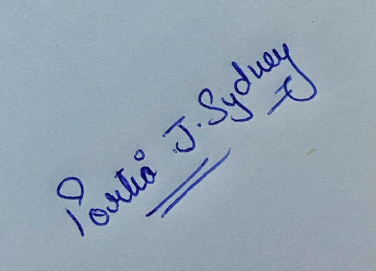 Portia J. Sydney